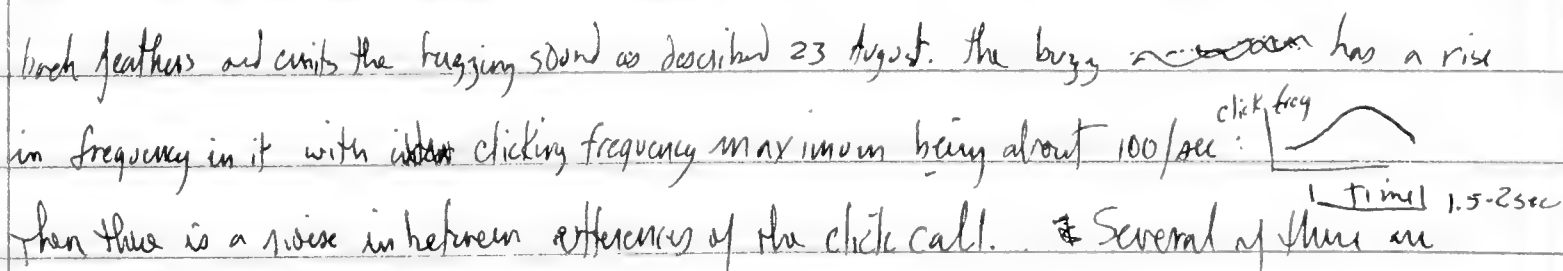 back feathers and emits the buzzing sound as described 23 August. The buzz has a rise
in frequency in it with clicking frequency maximum being about 100/sec:
click freq
time 1.5-2sec
Then there is a noise in between utterances of the click call. Several of these are